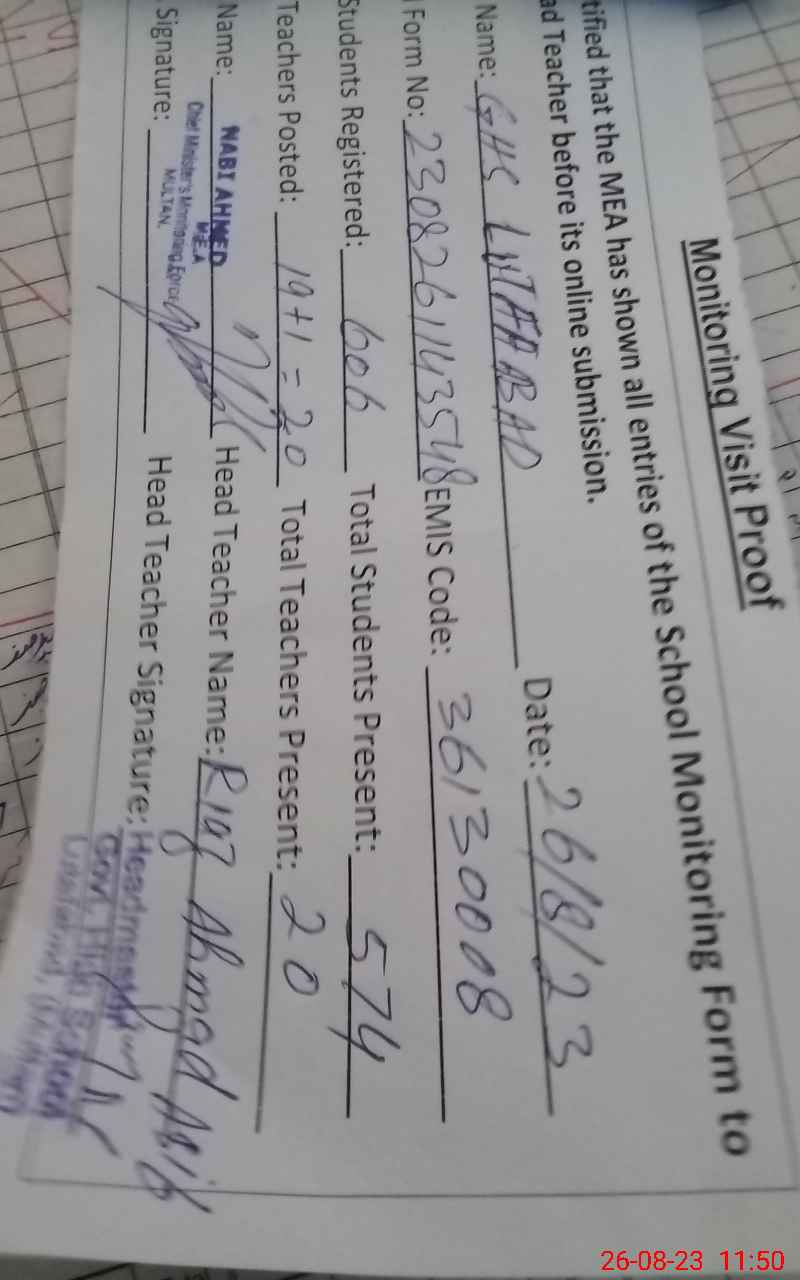 Monitoring Visit Proof
tified that the MEA has shown all entries of the School Monitoring Form to
ad Teacher before its online submission.
Name: GHS LUTAFABAD Date: 26/8/23
Form No: 2308261143548 EMIS Code: 36130008
Students Registered: 606 Total Students Present: 574
Teachers Posted: 19+1=20 Total Teachers Present: 20
Name: NABI AHMED Head Teacher Name: Riaz Ahmad Asif
M.E.A
Chief Minister's Monitoring Force
MULTAN.
Signature: Head Teacher Signature: Headmaster
Govt. High School
26-08-23 11:50